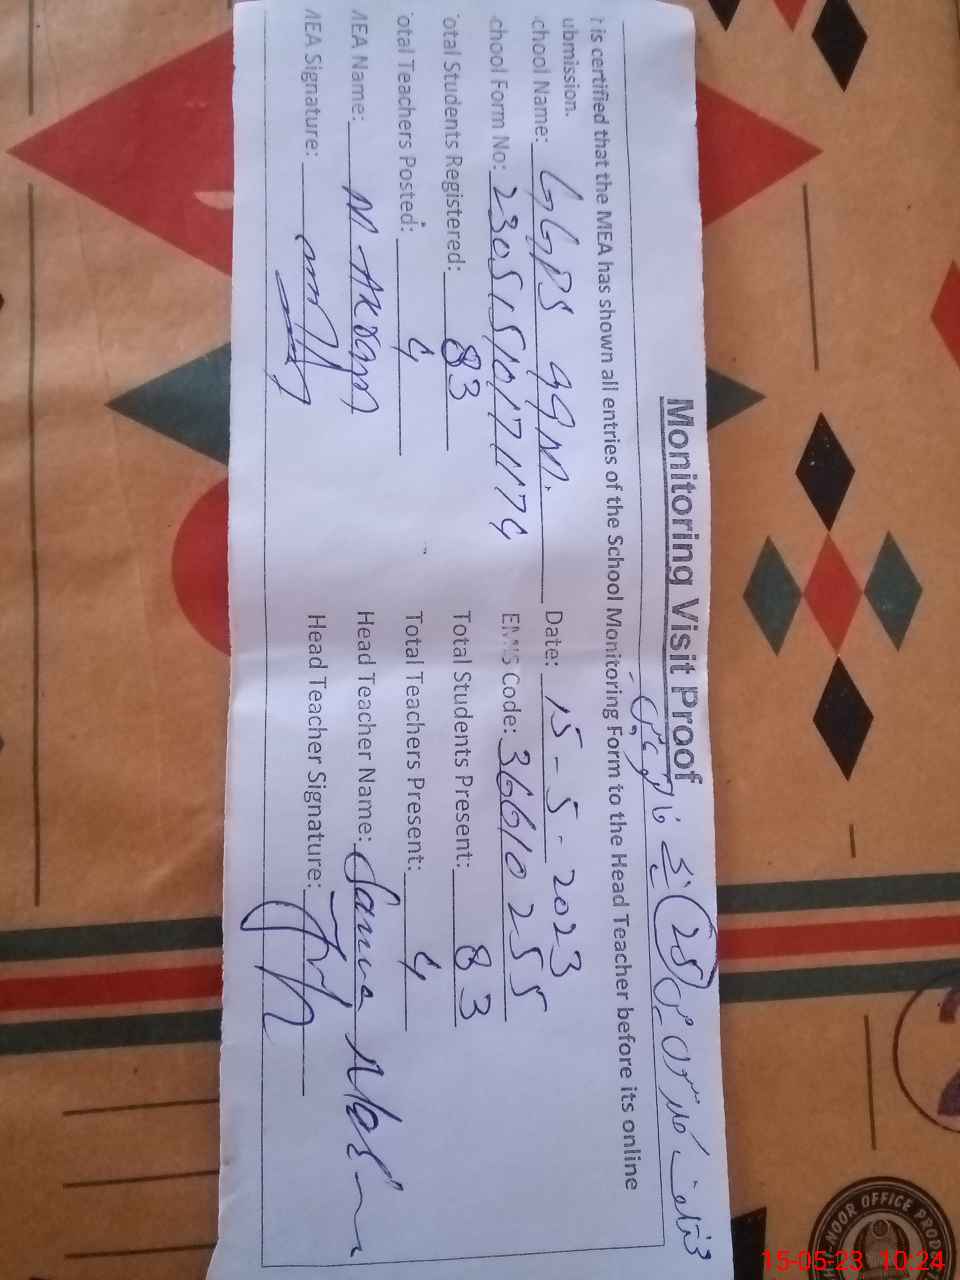 Monitoring Visit Proof
is certified that the MEA has shown all entries of the School Monitoring Form to the Head Teacher before its online
ubmission.
chool Name: GGPS 99 M. Date: 15-5-2023
chool Form No: EMIS Code: 36610255
otal Students Registered: 83 Total Students Present: 83
otal Teachers Posted: 4 Total Teachers Present: 4
MEA Name: M. Akram Head Teacher Name: Sama
MEA Signature: Head Teacher Signature:
NOOR OFFICE PROD
15-05-23 10:24